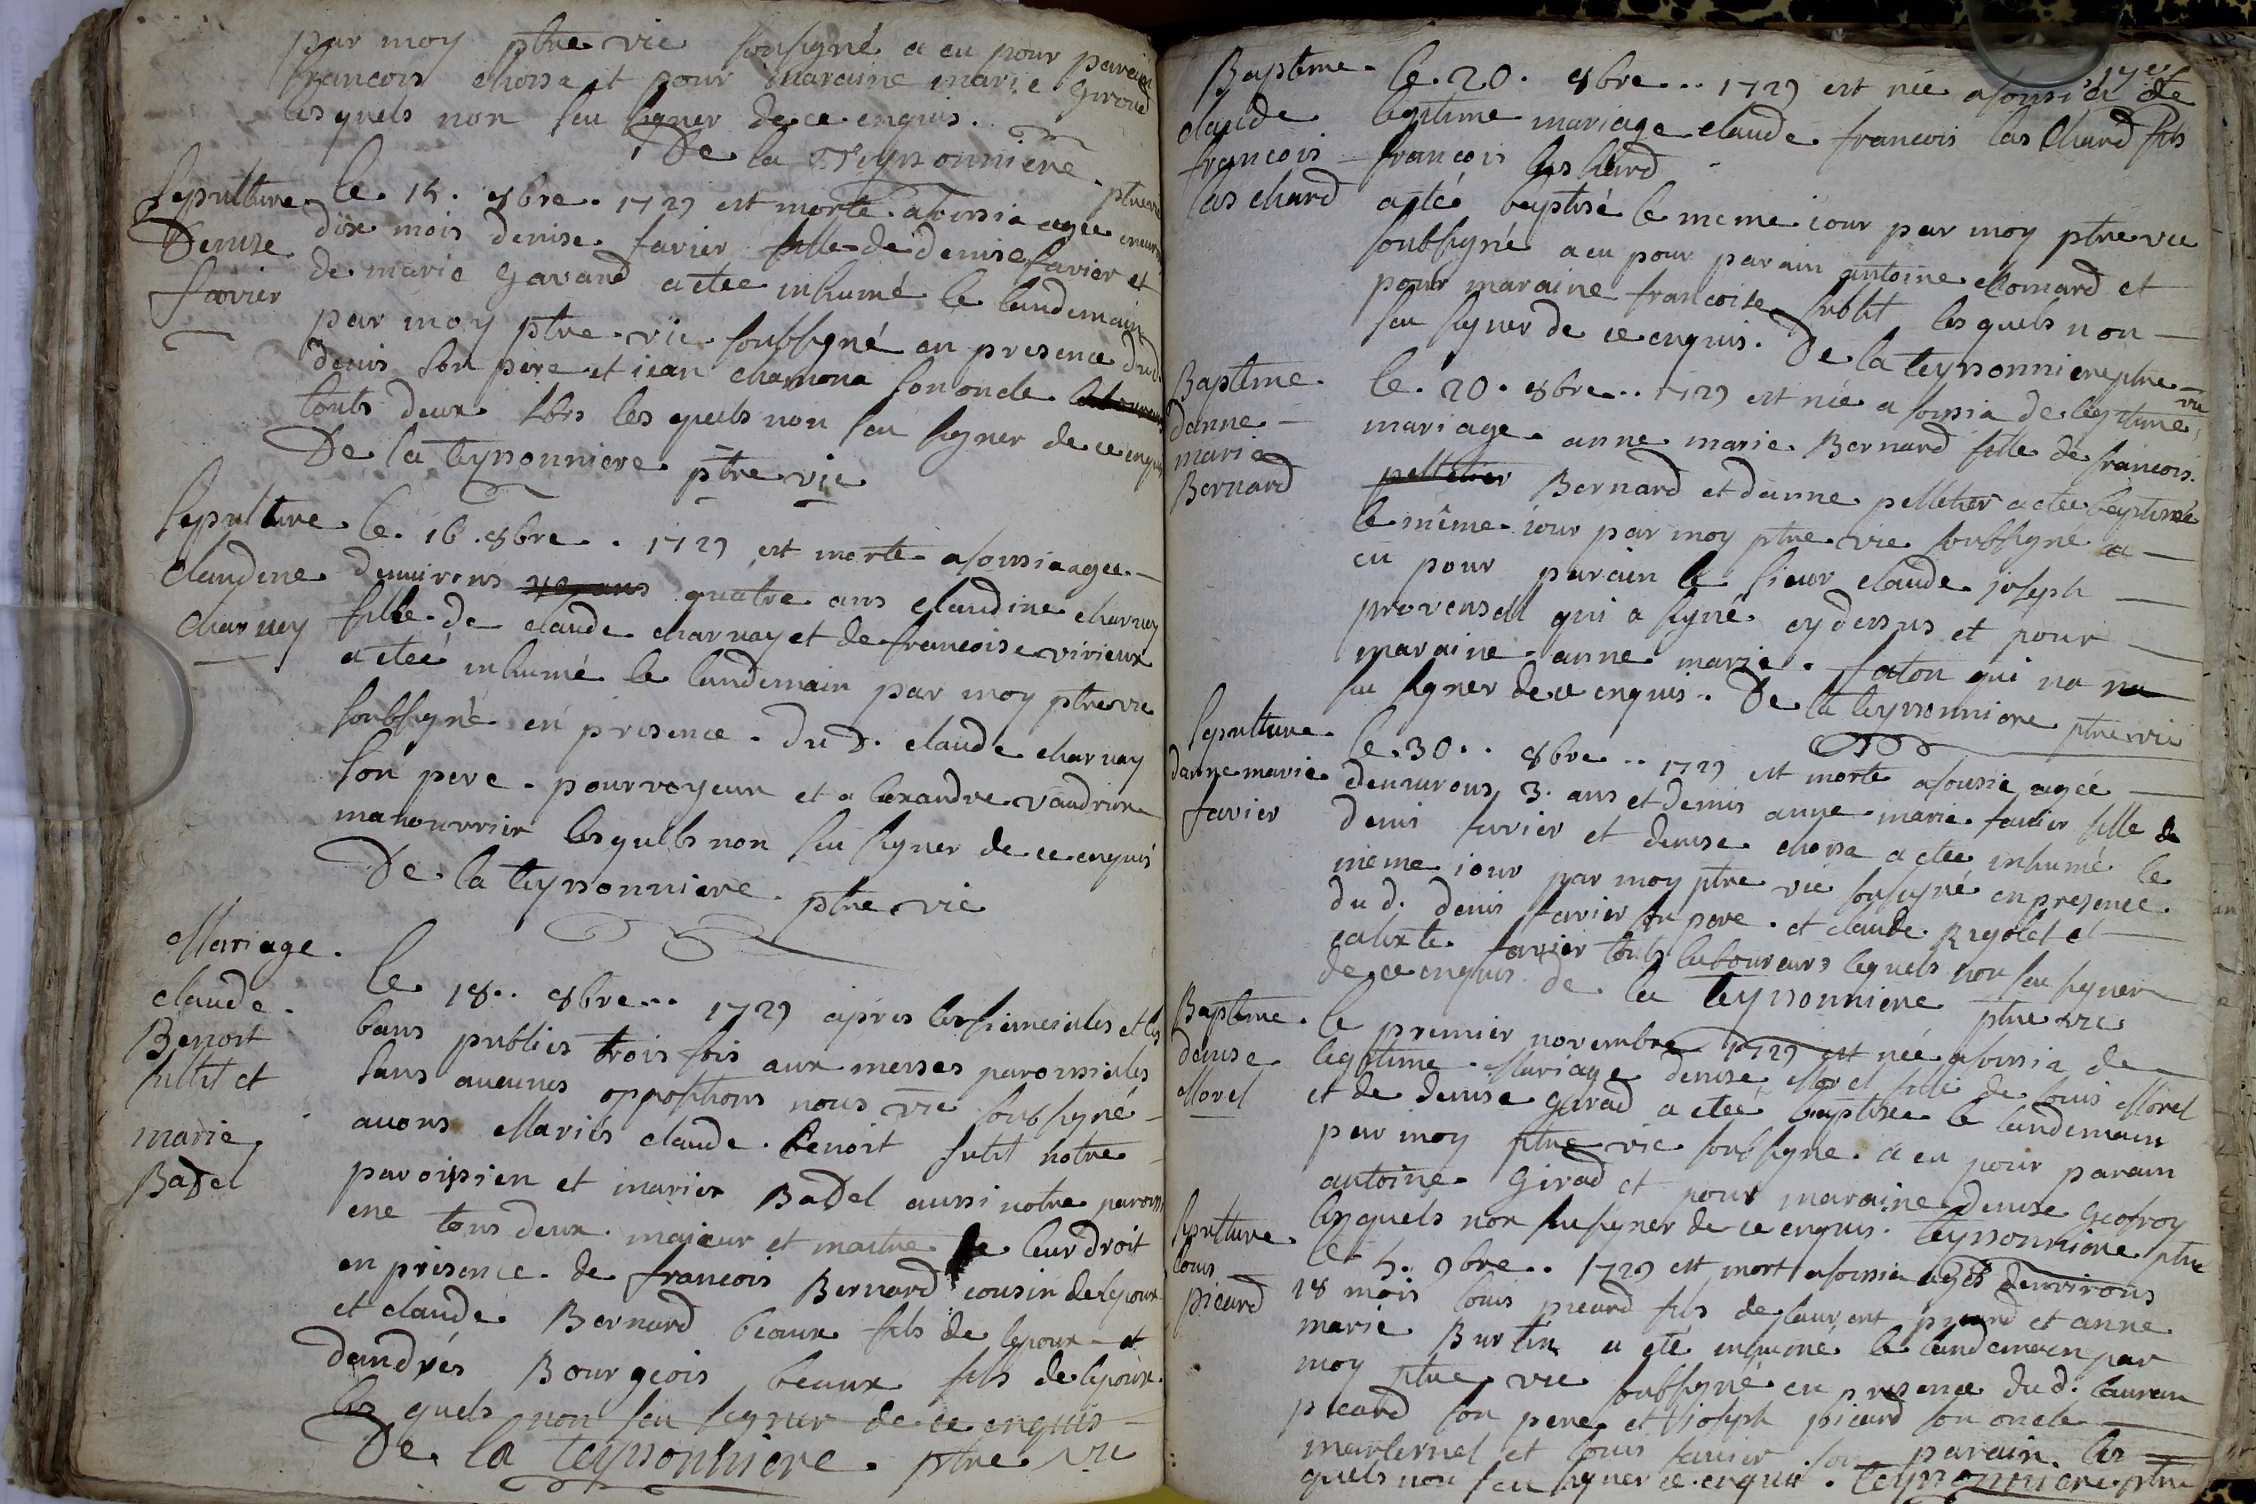 par moy ptre vic soussigné a eu pour parain
francois chossat pour maraine marie Giroud
lesquels non seu signer de ce enquis.
De la Teyssonniere ptre vic
Sepulture Denise favier
le 15. 8bre. 1729 est morte a foissia agee environ
dix mois denise favier fille de denis favier et
de marie Gavand a etee inhumé le landemain
par moy ptre vic soubsigné en presence dud.
denis son pere et iean chamona son oncle
touts deux lbrs les quels non seu signer de ce enquis
De la teyssonniere ptre vic
Sepulture claudine charney
le. 16. 8bre. 1729 est morte a foissia agee
denvirons quatre ans claudine charnay
fille de claude charnay et de francoise virieux
a eteé inhumé le landemain par moy ptre vic
soubsigné en presence du d. claude charnay
son pere pourvoyeur et alexandre vaudrion
manouvrier lesquells non seu signer de ce enquis
De la teyssonniere ptre vic
Mariage. claude Benoit subtil et marie Badel
le 18.. 8bre.. 1729 après les fiancialles et les
bans publiés trois fois aux messes paroissiales
sans aucunes oppositions nous vic soubsigné
avons Mariés claude Benoit subtil notre
paroissien et marier Badel aussi notre paroissi
ene tous deux maieur et maitre de leur droit
en presence de francois Bernard cousin de lepoux
et claude Bernard beaux fils de lepoux et
dandrés Bourgeois beaux fils de lepoux
les quels non seu signer de ce enquis
De la teyssonniere ptre vic
Baptême claude francois laschard
le. 20. 8bre.. 1729 est née a foissia de
legitime mariage claude francois las Chard fils
francois las chard
a eté baptisé le meme iour par moy ptre vic
soubsigné a eu pour parain antoine Momard et
pour maraine francoise subtil les quels non
seu signer de ce enquis. De la teyssonniere ptre vic
Baptême danne marie Bernard
le. 20. 8bre.. 1729 est née a foissia de legitime
mariage anne marie Bernard fille de francois
pelletier Bernard et danne pelletier a etee baptisée
le même iour par moy ptre vic soubsigné a
eu pour parain le sieur claude joseph
provensal qui a signé cydessus et pour
maraine anne marie faton qui na
su signer de ce enquis. De la teyssonniere ptre vic
Sepulture danne marie favier
le. 30.. 8bre.. 1729 est morte a foissia agéé
denvirons 3. ans et demis anne marie favier fille de
denis favier et denise chossa a etee inhumé le
meme iour par moy ptre vic sousigné en presence
du d. denis favier son pere et claude Rigolet et
calixte favier touts laboureurs lequels non seu signer
de ce enquis de la teyssonniere ptre vic
Baptême denise Morel
le premier novembre 1729 est née a foissia de
legitime Mariage denise Morel fille de louis Morel
et de denise girad a eteé baptisee le landemain
par moy ptre vic soubsigne a eu pour parain
antoine Girad et pour maraine denise Geofroy
lesquels non su signer de ce enquis. teyssonniere ptre
Sepulture louis picard
le 5. 9bre.. 1729 est mort a foissia agés denvirons
18 mois louis picard fils de laurent picard et anne
marie Burtin a eté inhumé le landemain par
moy ptre vic soubsigné en presence du d. lauren
picard son pere et joseph picard son oncle
marternel et louis favier son parain les
quels non seu signer ce enquis. teyssonniere ptre